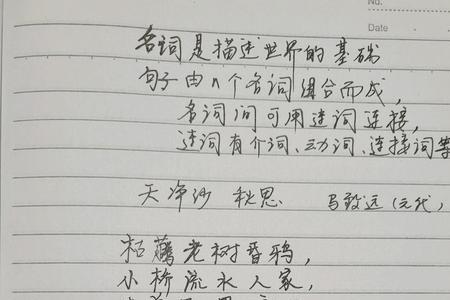 No.
Date
名词是描述世界的基础
句子由n个名词组合而成,
名词间可用连词连接,
连词有介词、动词、连接词等
天净沙 秋思 马致远(元代,
枯藤老树昏鸦,
小桥流水人家,